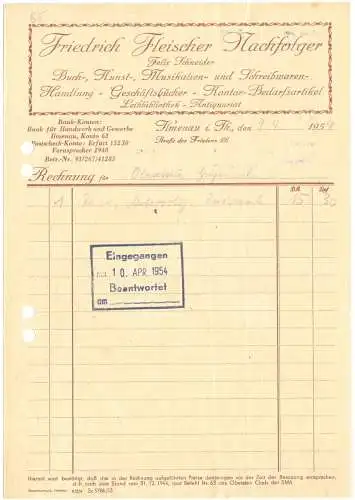 Friedrich Fleischer Nachfolger
Felix Schneider
Buch-, Kunst-, Musikalien- und Schreibwaren-
Handlung - Geschäftsbücher - Kontor-Bedarfsartikel
Leihbibliothek - Antiquariat
Bank-Konten:
Bank für Handwerk und Gewerbe
Ilmenau, Konto 63
Postscheck-Konto: Erfurt 15230
Fernsprecher 2940
Betr.-Nr. 93/267/41203
Ilmenau i. Th., den 195
Straße des Friedens 28
Rechnung für
DM Dpf
1 15 30
Eingegangen
10. APR. 1954
Beantwortet
am
Hiermit wird bestätigt, daß die in der Rechnung aufgeführten Preise denjenigen vor der Zeit der Besatzung entsprechen,
d. h. nach dem Stand vom 31. 12. 1944, laut Befehl Nr. 63 des Obersten Chefs der SMA